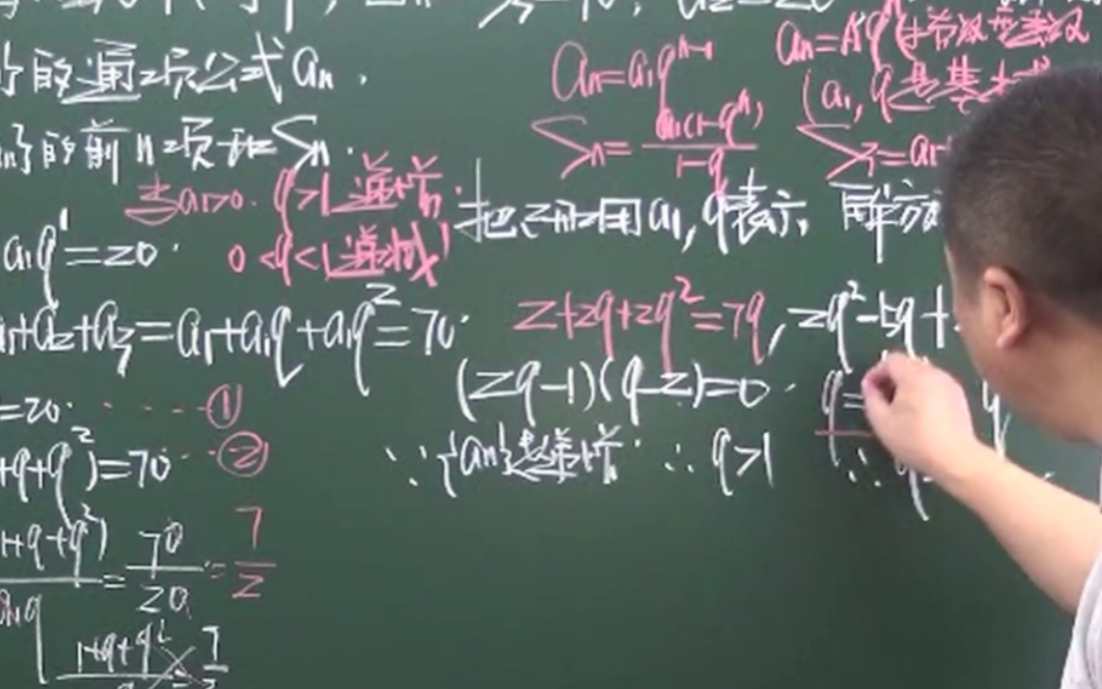 的通项公式an.
an}的前n项和Sn.
当a1>0. q>1递增.
0<q<1递减
a1q¹=20.
a1+a2+a3=a1+a1q+a1q²=70.
=20. ①
+q+q²)=70 ②
1+q+q²) / a1q = 70/20 = 7/2
1+q+q² 7
an=a1qⁿ⁻¹
Sn=a1(1-qⁿ)/1-q
an=Aqⁿ
(a1,q是基本
S3=a1
用a1,q表示,解方
2+2q+2q²=7q, 2q²-5q+
(2q-1)(q-2)=0.
q=
∵{an}是递增 ∴q>1 ∵q